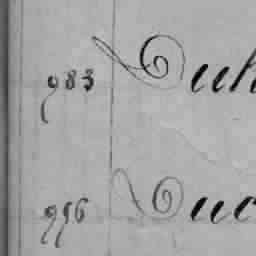 983 Duh
956 Duc